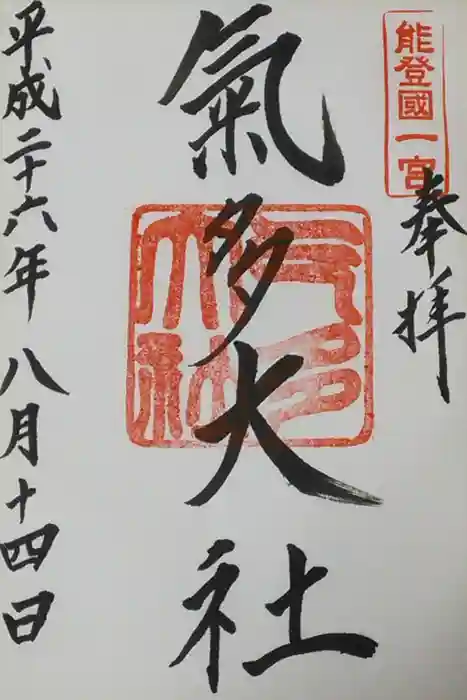 能登國一宮
奉拝
氣多大社
气多大社
平成二十六年八月十四日